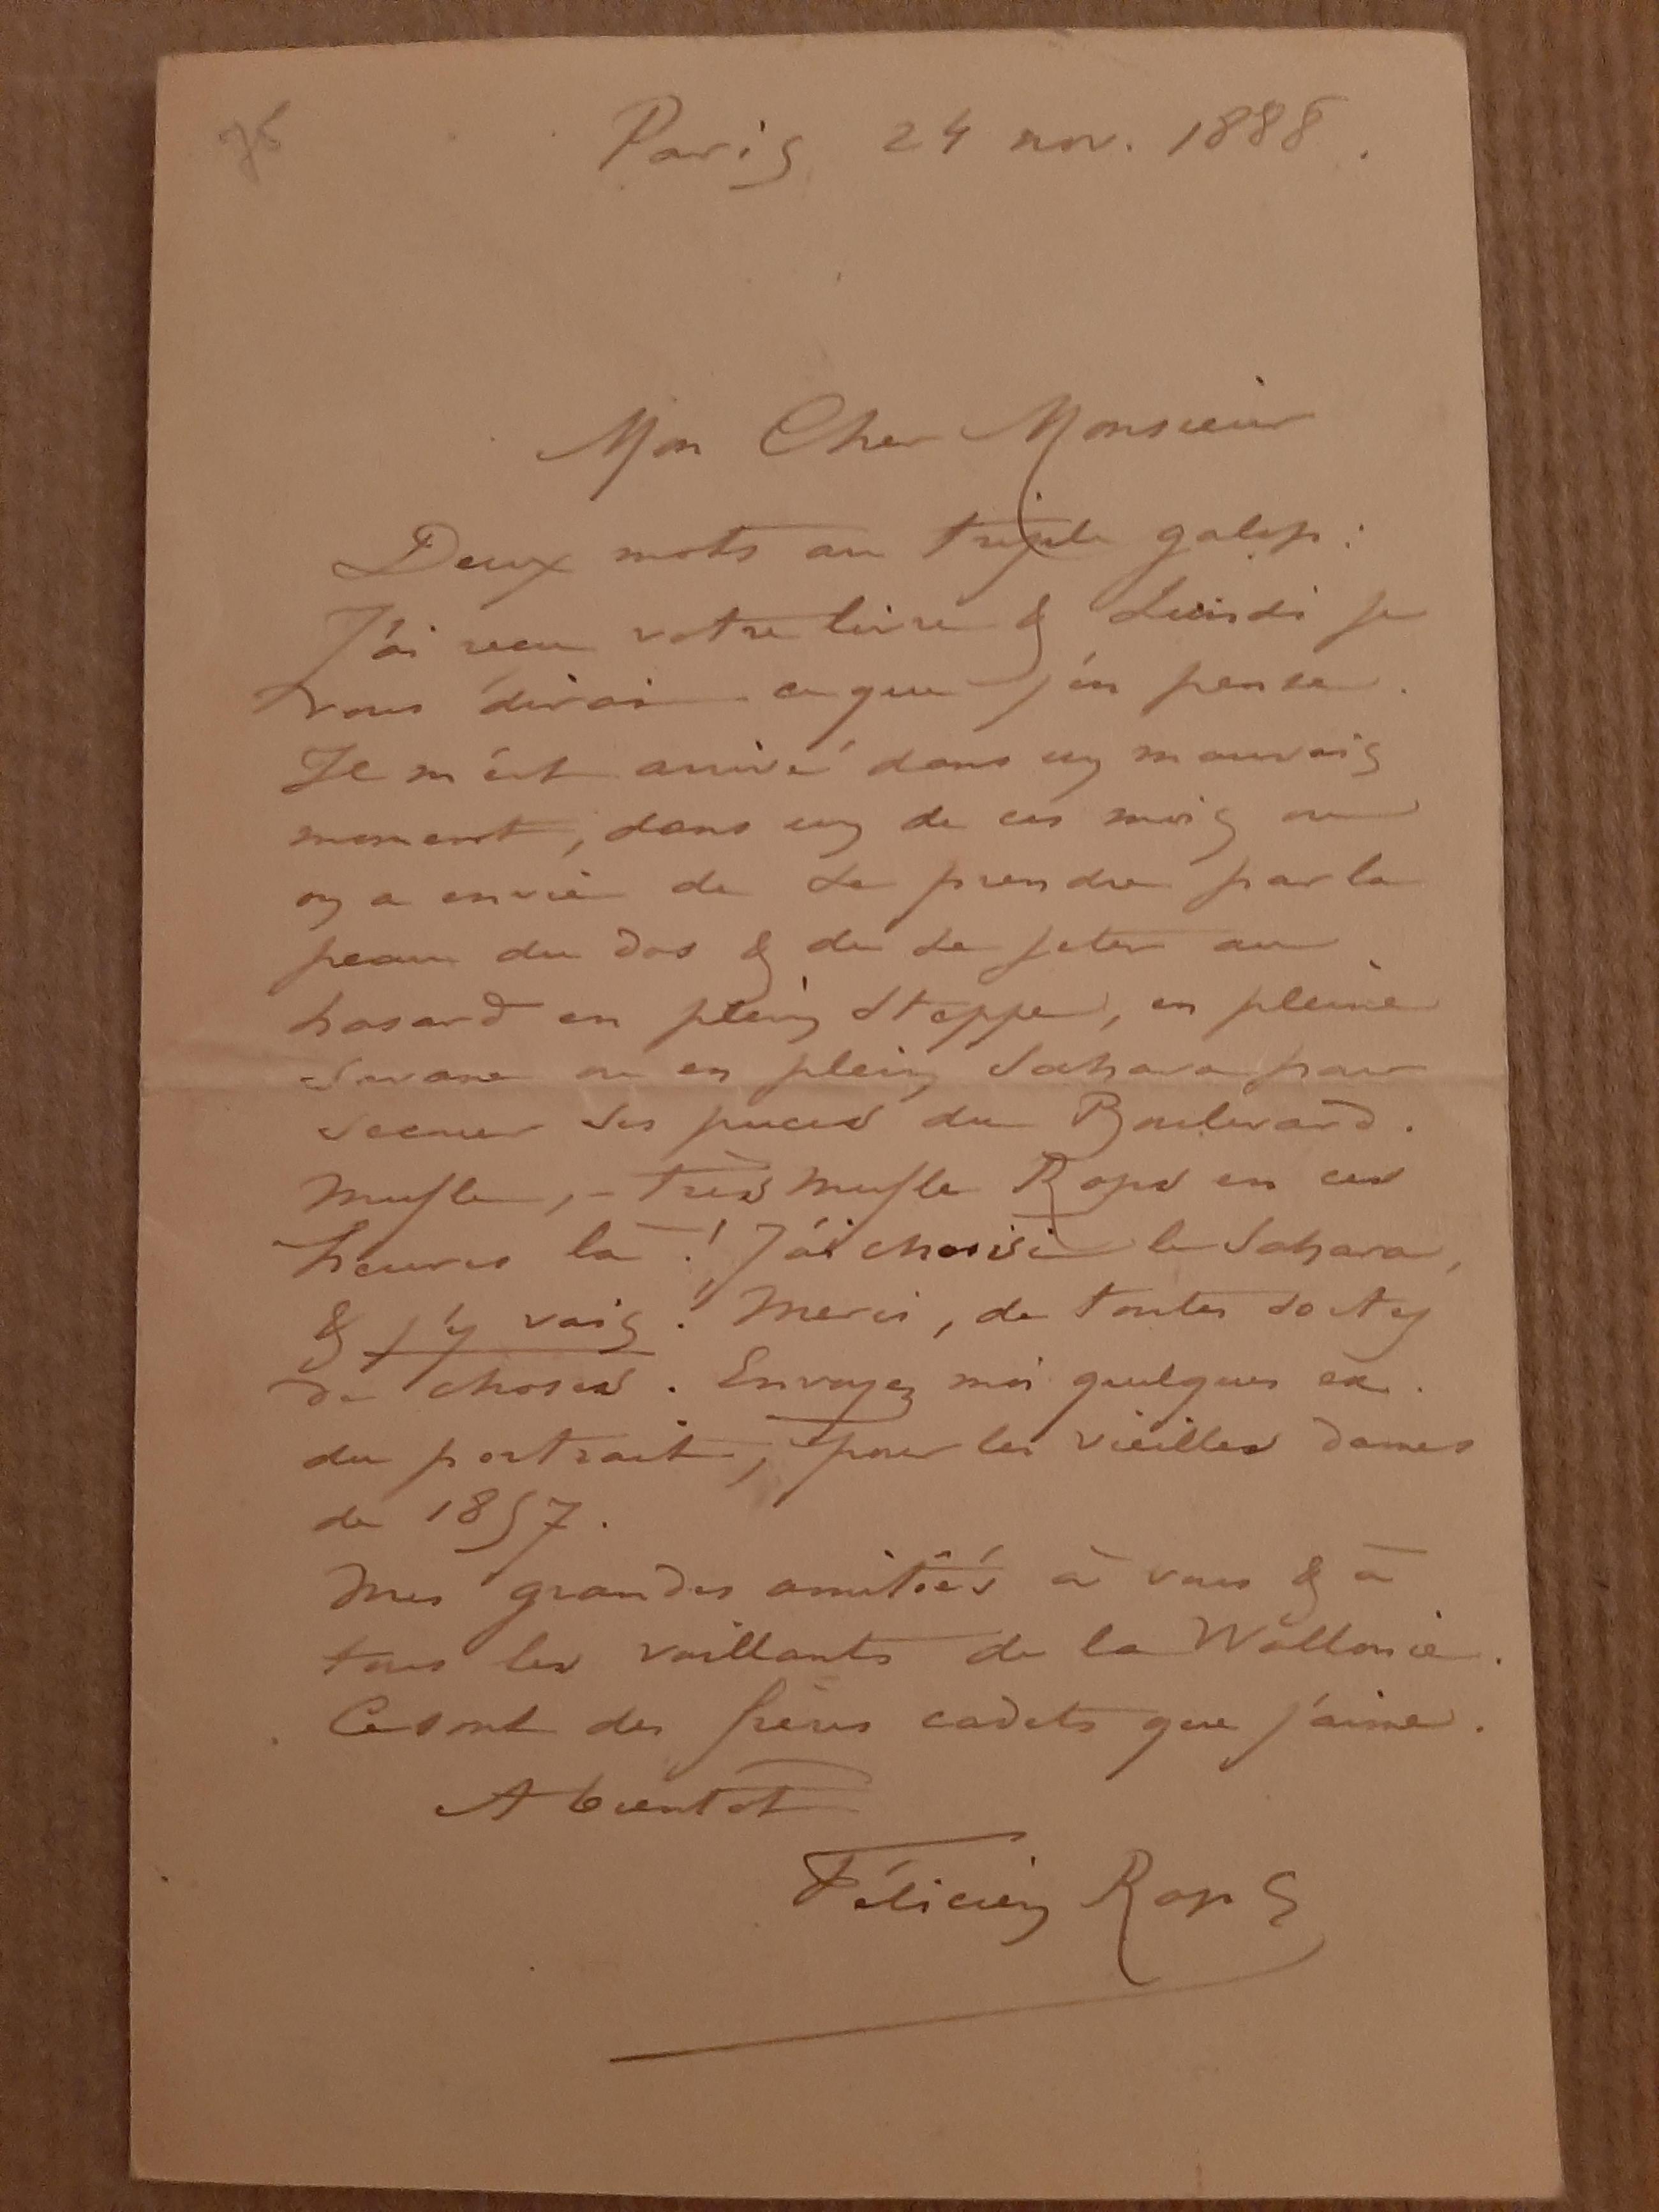 75
Paris 24 nov. 1888.
Mon Cher Monsieur
Deux mots au triple galop:
J'ai reçu votre livre & Lundi je
vous dirai ce que j'en pense.
Il m'est arrivé dans un mauvais
moment, dans un de ces mois ou
on a envie de se prendre par la
peau du dos & de se jeter au
hasard en plein Steppe, en pleine
Savane ou en plein Sahara pour
secouer ses puces du Boulevard.
Mufle, – très mufle Rops en ces
heures là! J'ai choisi le Sahara,
& j'y vais! Merci, de toutes sortes
de choses. Envoyez moi quelques ex.
du portrait, pour les vieilles dames
de 1857.
Mes grandes amitiés à vous & à
tous les vaillants de la Wallonie.
Ce sont des frères cadets que j'aime.
A bientôt
Félicien Rops